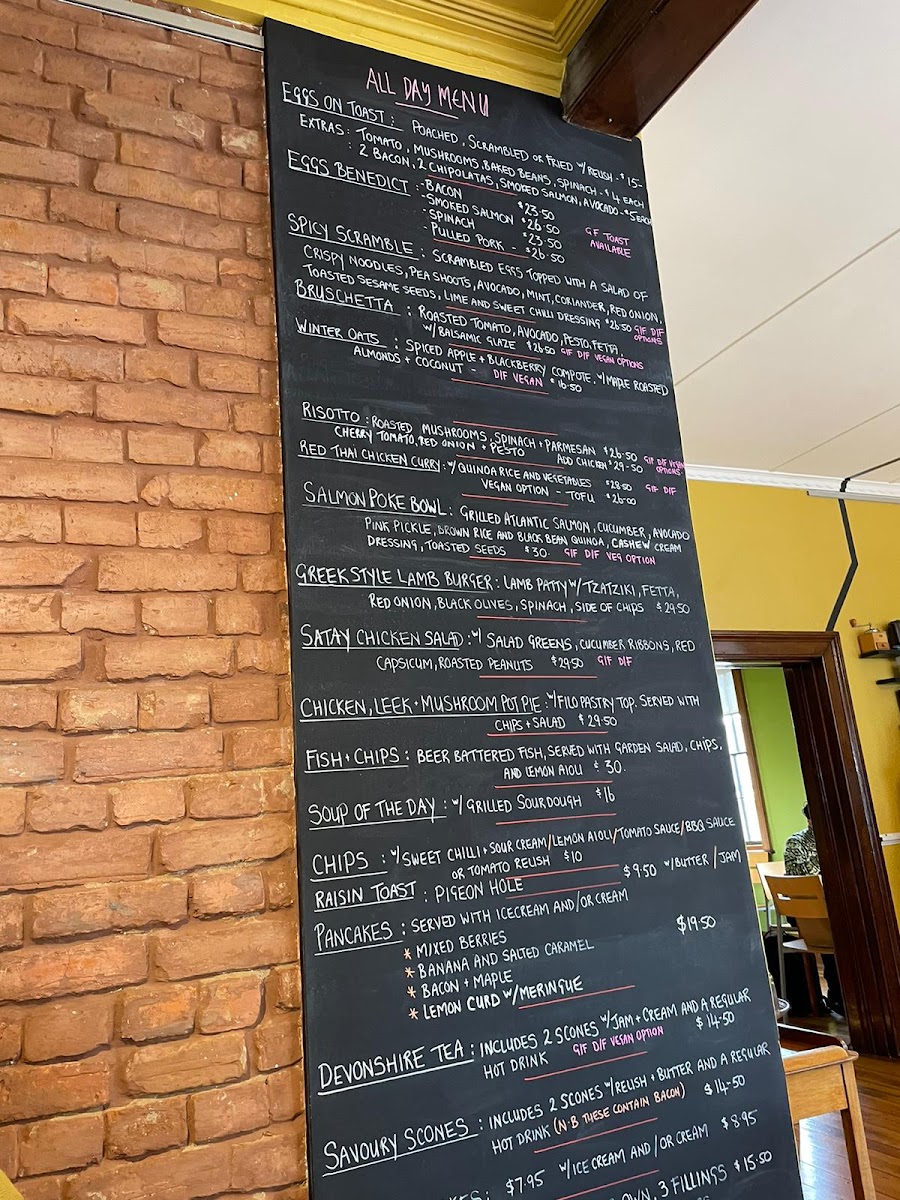 ALL DAY MENU
EGGS ON TOAST: POACHED, SCRAMBLED OR FRIED W/RELISH. $15-
EXTRAS: TOMATO, MUSHROOMS, BAKED BEANS, SPINACH - $4 EACH
: 2 BACON, 2 CHIPOLATAS, SMOKED SALMON, AVOCADO - $5 EACH
EGGS BENEDICT: -BACON $23.50
-SMOKED SALMON $26.50
-SPINACH $23.50
-PULLED PORK - $26.50
GF TOAST
AVAILABLE
SPICY SCRAMBLE: SCRAMBLED EGGS TOPPED WITH A SALAD OF
CRISPY NOODLES, PEA SHOOTS, AVOCADO, MINT, CORIANDER, RED ONION,
TOASTED SESAME SEEDS, LIME AND SWEET CHILLI DRESSING $26.50 G/F D/F
OPTIONS
BRUSCHETTA: ROASTED TOMATO, AVOCADO, PESTO, FETTA,
W/BALSAMIC GLAZE $26.50 G/F D/F VEGAN OPTIONS
WINTER OATS: SPICED APPLE + BLACKBERRY COMPOTE. W/MAPLE ROASTED
ALMONDS + COCONUT - D/F VEGAN $16.50
RISOTTO: ROASTED MUSHROOMS, SPINACH + PARMESAN $26.50
CHERRY TOMATO, RED ONION + PESTO ADD CHICKEN $29-50 G/F D/F VEGAN
OPTIONS
RED THAI CHICKEN CURRY: W/QUINOA RICE AND VEGETABLES $28.50 G/F D/F
VEGAN OPTION - TOFU $26-00
SALMON POKE BOWL: GRILLED ATLANTIC SALMON, CUCUMBER, AVOCADO
PINK PICKLE, BROWN RICE AND BLACK BEAN QUINOA, CASHEW CREAM
DRESSING, TOASTED SEEDS $30. G/F D/F VEG OPTION
GREEK STYLE LAMB BURGER: LAMB PATTY W/TZATZIKI, FETTA,
RED ONION, BLACK OLIVES, SPINACH, SIDE OF CHIPS $29.50
SATAY CHICKEN SALAD: W/ SALAD GREENS, CUCUMBER RIBBONS, RED
CAPSICUM, ROASTED PEANUTS $29.50 G/F D/F
CHICKEN, LEEK + MUSHROOM POT PIE: W/FILO PASTRY TOP. SERVED WITH
CHIPS + SALAD $29.50
FISH + CHIPS: BEER BATTERED FISH, SERVED WITH GARDEN SALAD, CHIPS,
AND LEMON AIOLI $30.
SOUP OF THE DAY: W/ GRILLED SOURDOUGH $16
CHIPS: W/SWEET CHILLI + SOUR CREAM/LEMON AIOLI/TOMATO SAUCE/BBQ SAUCE
OR TOMATO RELISH $10
RAISIN TOAST: PIGEON HOLE $9.50 W/BUTTER/JAM
PANCAKES: SERVED WITH ICECREAM AND/OR CREAM
* MIXED BERRIES $19.50
* BANANA AND SALTED CARAMEL
* BACON + MAPLE
* LEMON CURD W/MERINGUE
DEVONSHIRE TEA: INCLUDES 2 SCONES W/JAM + CREAM AND A REGULAR
HOT DRINK G/F D/F VEGAN OPTION $14.50
SAVOURY SCONES: INCLUDES 2 SCONES W/RELISH + BUTTER AND A REGULAR
HOT DRINK (N.B THESE CONTAIN BACON) $14-50
$7.95 W/ICE CREAM AND/OR CREAM $8.95
3 FILLINGS $15.50